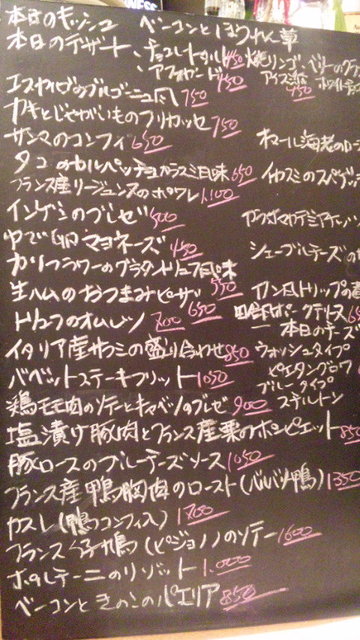 本日のキッシュ ベーコンとほうれん草
本日のデザート、チョコレートタルト450 焼リンゴ、ベリーの
アフォガード450 アイス添 450
エスカルゴのブルゴーニュ風 750
カキとじゃがいものフリカッセ 750
サンマのコンフィ 650
タコのカルペッチョカラスミ風味 650
フランス産リージュンヌのポワレ 1,100
インゲンのブレゼ 500
ゆで卵マヨネーズ 450
カリフラワーのグラタントリュフ風味 550
生ハムのおつまみピザッツ 650
トリュフのオムレツ 700
イタリア産サラミの盛り合わせ 950
バベットステーキフリット 1050
鶏モモ肉のソテーとキャベツのブレゼ 900
塩漬け豚肉とフランス産栗のポーピエット 850
豚ロースのブルーチーズソース 1050
フランス産鴨胸肉のロースト(バルバリ鴨) 1350
カスレ(鴨コンフィ入) 1700
フランス仔鳩(ピジョノ)のソテー 1600
ポルチーニのリゾット 1,000
ベーコンときのこのパエリア 850
オマール海老のロー
イカスミのスパゲッ
シェーブルチーズの
本日のチーズ
ウォッシュタイプ
ピエダングロワ
ブルータイプ
スチルトン